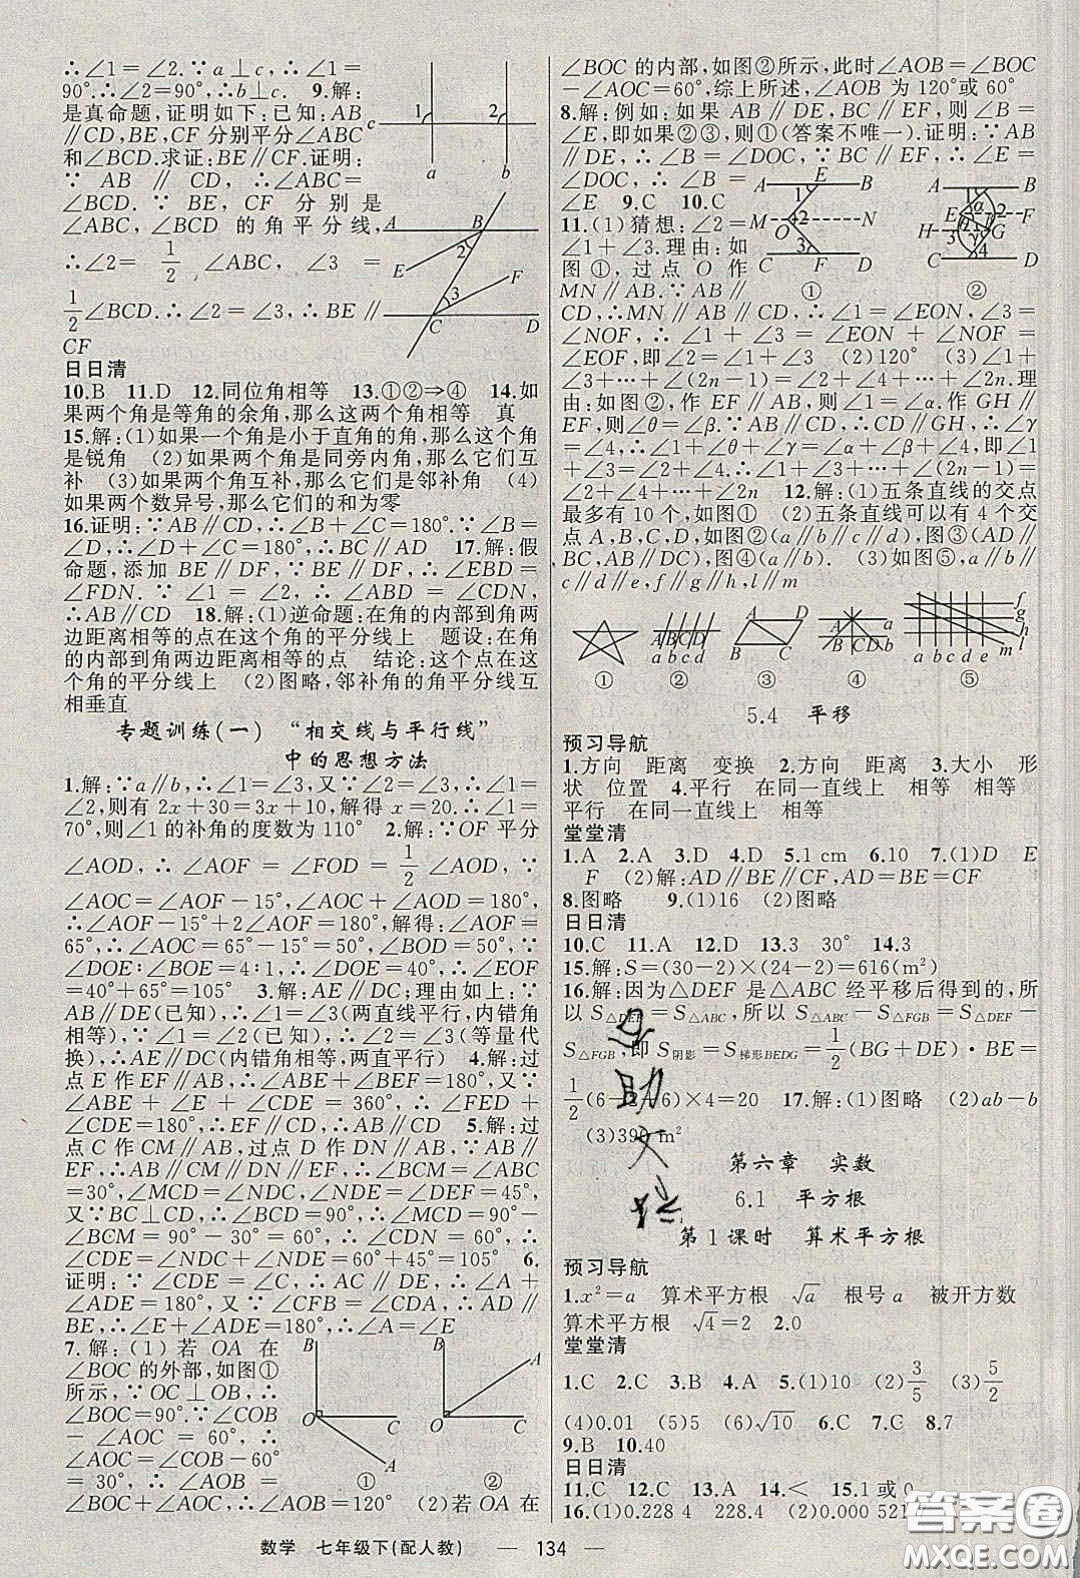 ∴∠1=∠2.∵a⊥c,∴∠1=
90°.∴∠2=90°,∴b⊥c. 9.解:
是真命题,证明如下:已知:AB
∥CD,BE,CF 分别平分∠ABC
和∠BCD.求证:BE∥CF.证明:
∵ AB ∥ CD,∴∠ABC=
∠BCD.∵ BE, CF 分别是
∠ABC,∠BCD 的角平分线,
∴∠2 = 1/2 ∠ABC, ∠3 =
1/2 ∠BCD.∴∠2=∠3,∴BE∥
CF
1
2
c
a
b
A
B
2
E
F
3
C
D
日日清
10.B 11.D 12.同位角相等 13.①②⇒④ 14.如
果两个角是等角的余角,那么这两个角相等 真
15.解:(1)如果一个角是小于直角的角,那么这个角
是锐角 (2)如果两个角是同旁内角,那么它们互
补 (3)如果两个角互补,那么它们是邻补角 (4)
如果两个数异号,那么它们的和为零
16.证明:∵AB∥CD,∴∠B+∠C=180°.∵∠B=
∠D,∴∠D+∠C=180°,∴BC∥AD 17.解:假
命题,添加 BE∥DF,∵BE∥DF,∴∠EBD=
∠FDN.∵∠ABE=∠CDF,∴∠ABD=∠CDN,
∴AB∥CD 18.解:(1)逆命题:在角的内部到角两
边距离相等的点在这个角的平分线上 题设:在角
的内部到角两边距离相等的点 结论:这个点在这
个角的平分线上 (2)图略,邻补角的角平分线互
相垂直
专题训练(一) “相交线与平行线”
中的思想方法
1.解:∵a∥b,∴∠1=∠3,又∵∠2=∠3,∴∠1=
∠2,则有 2x+30=3x+10.解得 x=20.∴∠1=
70°,则∠1 的补角的度数为 110° 2.解:∵OF 平分
∠AOD,∴∠AOF=∠FOD=1/2∠AOD,∵
∠AOC=∠AOF-15°,∠AOC+∠AOD=180°,
∴∠AOF-15°+2∠AOF=180°,解得:∠AOF=
65°,∴∠AOC=65°-15°=50°,∠BOD=50°,∵
∠DOE:∠BOE=4:1,∴∠DOE=40°,∴∠EOF
=40°+65°=105° 3.解:AE∥DC;理由如下:∵
AB∥DE(已知),∴∠1=∠3(两直线平行,内错角
相等),∵∠1=∠2(已知),∴∠2=∠3(等量代
换),∴AE∥DC(内错角相等,两直平行) 4.解:过
点 E 作 EF∥AB,∴∠ABE+∠BEF=180°,又∵
∠ABE+∠E+∠CDE=360°,∴∠FED+
∠CDE=180°,∴EF∥CD,∴AB∥CD 5.解:过
点 C 作 CM∥AB,过点 D 作 DN∥AB,∵AB∥
EF,∴AB∥CM∥DN∥EF,∴∠BCM=∠ABC
=30°,∠MCD=∠NDC,∠NDE=∠DEF=45°,
又∵BC⊥CD,∴∠BCD=90°,∴∠MCD=90°-
∠BCM=90°-30°=60°,∴∠CDN=60°,∴
∠CDE=∠NDC+∠NDE=60°+45°=105° 6.
证明:∵∠CDE=∠C,∴DE∥AC,∴∠A+
∠ADE=180°,又∵∠CFB=∠CDA,∴AD∥
BE,∴∠E+∠ADE=180°,∴∠A=∠E
7.解:(1)若 OA 在
∠BOC 的外部,如图①
所示,∵OC⊥OB,∴
∠BOC=90°.∵∠COB
-∠AOC=60°,∴
∠AOC=∠COB-60°
=30°,∴∠AOB=
∠BOC+∠AOC,∴∠AOB=120° (2)若 OA 在
B
O
C
A
①
B
A
O
C
②
∠BOC 的内部,如图②所示,此时∠AOB=∠BOC
-∠AOC=60°,综上所述,∠AOB 为 120°或 60°
8.解:例如:如果 AB∥DE,BC∥EF,则∠B=
∠E,即如果②③,则①(答案不唯一).证明:∵AB
∥DE,∴∠B=∠DOC,∵BC∥EF,∴∠DOC=
∠E,∴∠B=
∠E 9.C 10.C
11.(1)猜想:∠2=
∠1+∠3.理由:如
图①,过点 O 作
MN∥AB.∵AB∥
A
E
B
1
M
2
N
O
3
C
F
D
①
A
B
E
α
H
3
γ
G
4
C
D
②
CD,∴MN∥AB∥CD,∴∠1=∠EON,∠3=
∠NOF,∴∠1+∠3=∠EON+∠NOF=
∠EOF,即∠2=∠1+∠3 (2)120° (3)∠1+
∠3+…+∠(2n-1)=∠2+∠4+…+∠2n.理
由:如图②,作 EF∥AB,则∠1=∠α.作 GH∥
EF,则∠θ=∠β.∵AB∥CD,∴CD∥GH,∴∠γ
=∠4,∴∠1+∠θ+∠γ=∠α+∠β+∠4,即∠1
+∠3=∠2+∠4,∴∠1+∠3+…+∠(2n-1)=
∠2+∠4+…+∠2n 12.解:(1)五条直线的交点
最多有 10 个,如图① (2)五条直线可以有 4 个交
点 A,B,C,D,如图②(a∥b∥c∥d),图③(AD∥
BC,AB∥DC),图④(a∥b) (3)如图⑤,a∥b∥
c∥d∥e∥f∥g∥h,l∥m
①
ABCD
a b c d
②
A
D
B
C
③
A
a
B CD
b
④
f
g
h
l
m
a b c d e
⑤
5.4 平移
预习导航
1.方向 距离 变换 2.方向 距离 3.大小 形
状 位置 4.平行 在同一直线上 相等 相等
平行 在同一直线上 相等
堂堂清
1.A 2.A 3.D 4.D 5.1 cm 6.10 7.(1)D E
F (2)解:AD∥BE∥CF AD=BE=CF
8.图略 9.(1)16 (2)图略
日日清
10.C 11.A 12.D 13.3 30° 14.3
15.解:S=(30-2)×(24-2)=616(m²)
16.解:因为△DEF 是△ABC 经平移后得到的,所
以 S△DEF=S△ABC,所以 S△ABC-S△FGB=S△DEF-
S△FGB,即 S阴影=S梯形BEDG=1/2(BG+DE)·BE=
1/2(6-2+6)×4=20 17.解:(1)图略 (2)ab-b
(3)390 m²
第六章 实数
6.1 平方根
第 1 课时 算术平方根
预习导航
1.x²=a 算术平方根 √a 根号 a 被开方数
算术平方根 √4=2 2.0
堂堂清
1.C 2.C 3.B 4.A 5.(1)10 (2)3/5 (3)5/2
(4)0.01 (5)5 (6)√10 6.C 7.C 8.7
9.B 10.40
日日清
11.C 12.C 13.A 14.< 15.1 或 0
16.(1)0.228 4 228.4 (2)0.000 521
数学 七年级下(配人教) — 134 —
答案圈
MXQE.COM